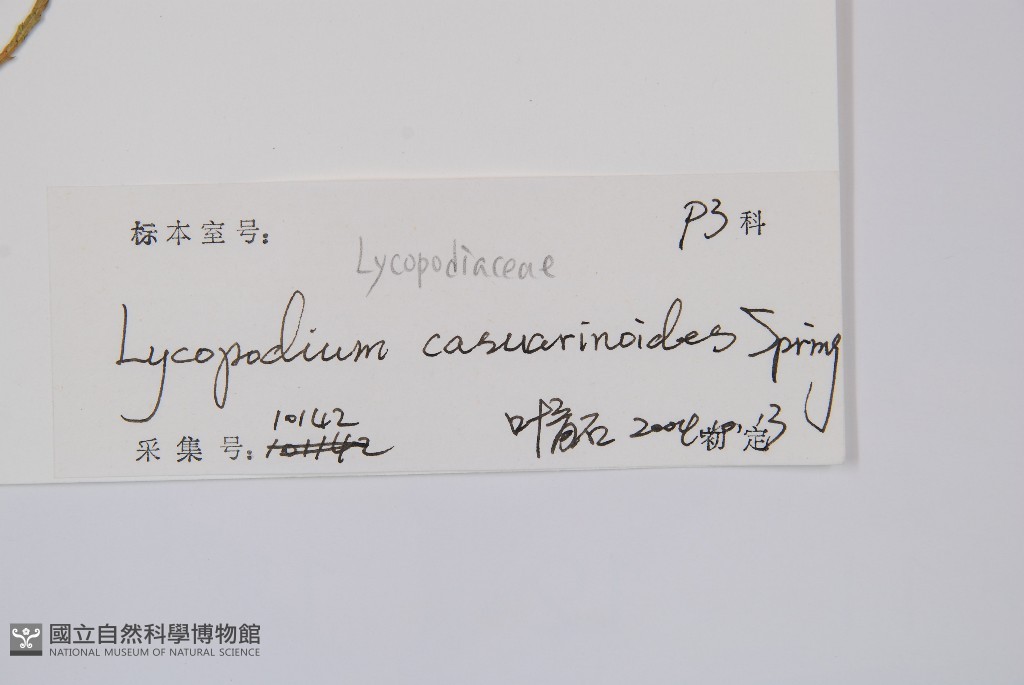 标本室号: P3科
Lycopodiaceae
Lycopodium casuarinoides Spring
10142
采集号: 101142 叶育石 2004 定
國立自然科學博物館
NATIONAL MUSEUM OF NATURAL SCIENCE